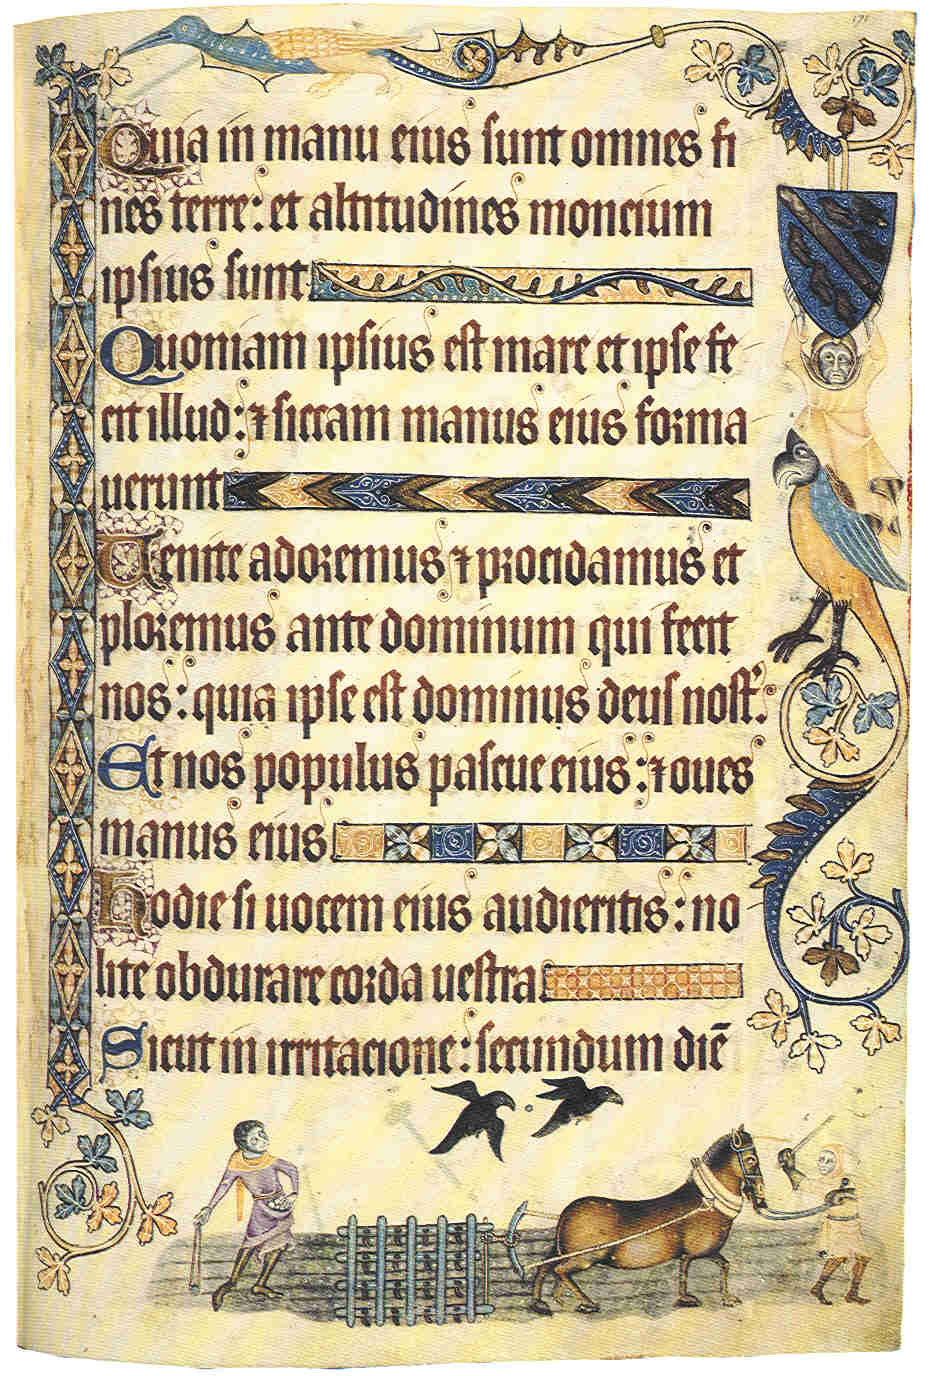 171
Quia in manu eius sunt omnes fi
nes terre: et altitudines moncium
ipsius sunt
Quoniam ipsius est mare et ipse fe
cit illud: ⁊ siccam manus eius forma
uerunt
Uenite adoremus ⁊ procidamus et
ploremus ante dominum qui fecit
nos: quia ipse est dominus deus nost̉.
Et nos populus pascue eius: ⁊ oues
manus eius
Hodie si uocem eius audieritis: no
lite obdurare corda uestra
Sicut in irritacione: secundum diē